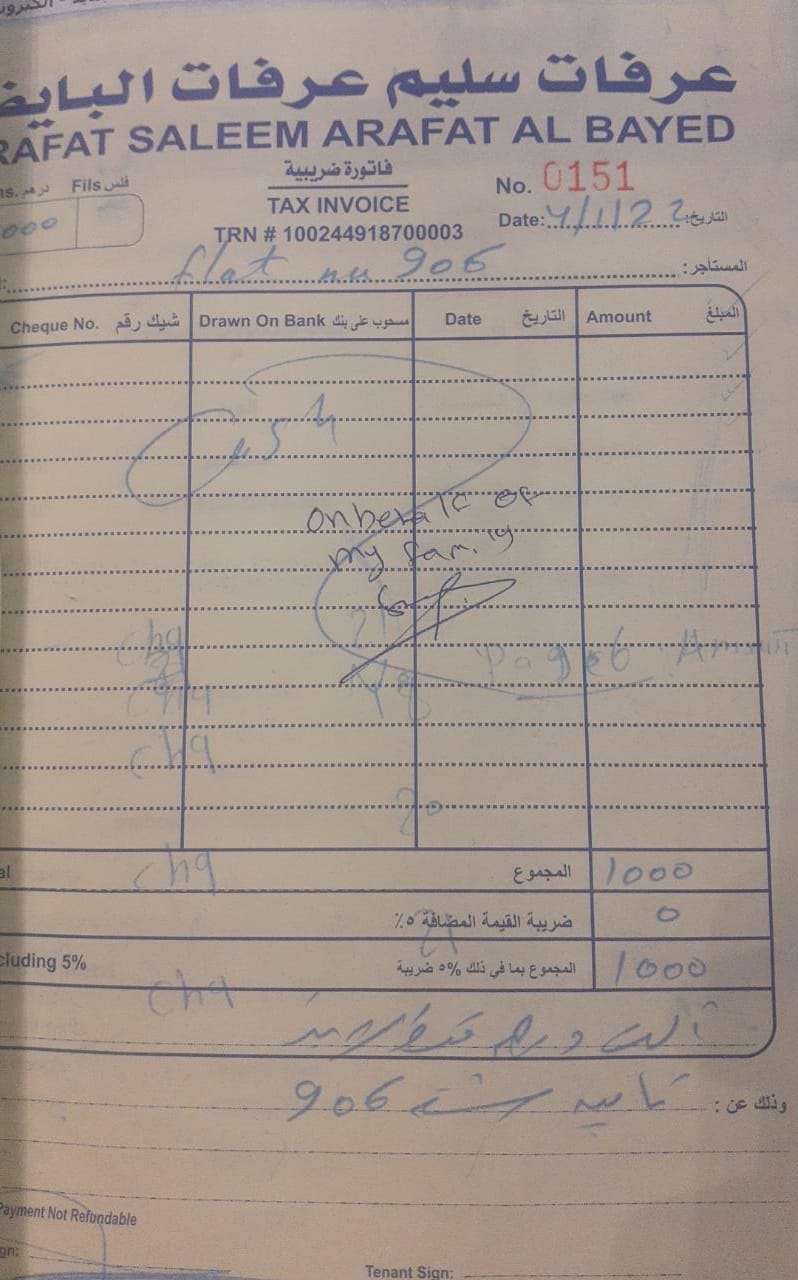 عرفات سليم عرفات البايض
RAFAT SALEEM ARAFAT AL BAYED
فاتورة ضريبية
TAX INVOICE
TRN # 100244918700003
No. 0151
Date: 4/1/22 التاريخ:
درهم Fils فلس
000
flat nu 906 المستأجر:
Cheque No. شيك رقم Drawn On Bank مسحوب على بنك Date التاريخ Amount المبلغ
Cash
on behalf of
my family
chq
chq
chq
20
chq
المجموع 1000
ضريبة القيمة المضافة ٥٪ 0
cluding 5% المجموع بما في ذلك ٥% ضريبة 1000
chq
ألف درهم فقط لاغير
وذلك عن : تامين شقة 906
Payment Not Refundable
gn:
Tenant Sign: